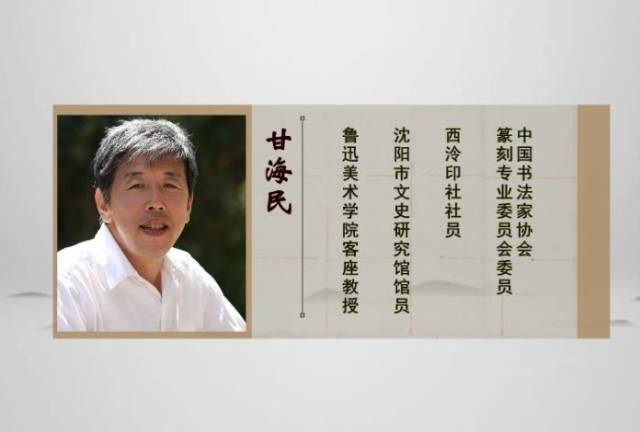 甘海民
中国书法家协会
篆刻专业委员会委员
西泠印社社员
沈阳市文史研究馆馆员
鲁迅美术学院客座教授